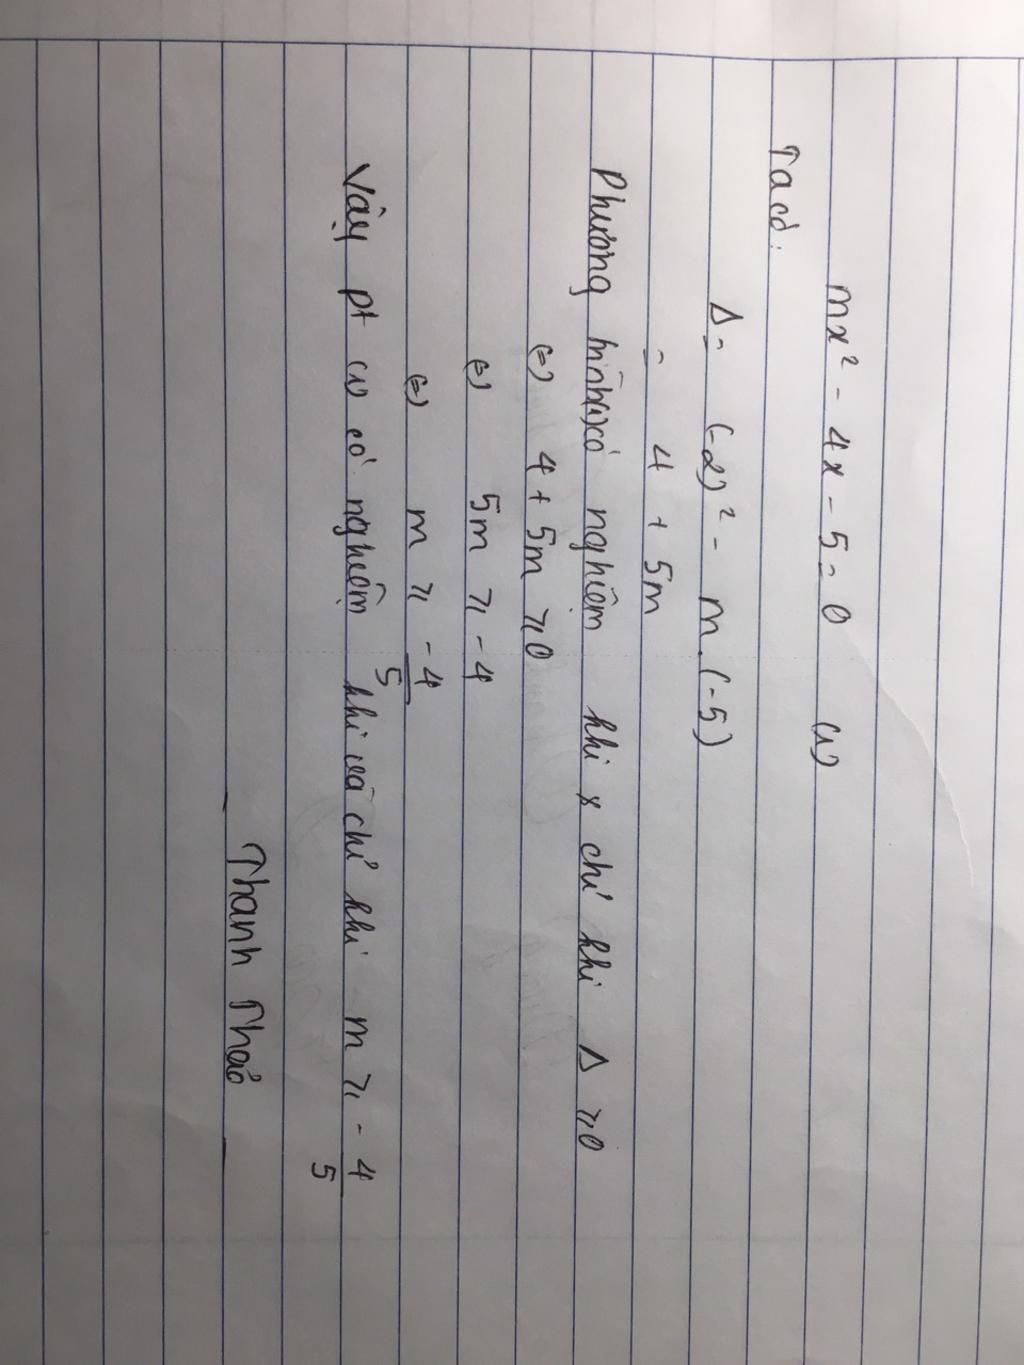 mx² - 4x - 5 = 0 (1)
Ta có:
Δ = (-2)² - m.(-5)
= 4 + 5m
Phương trình(1)có nghiệm khi & chỉ khi Δ ≥ 0
(=) 4 + 5m ≥ 0
(=) 5m ≥ -4
(=) m ≥ -4/5
Vậy pt (1) có nghiệm khi và chỉ khi m ≥ -4/5
_ Thanh Thảo _